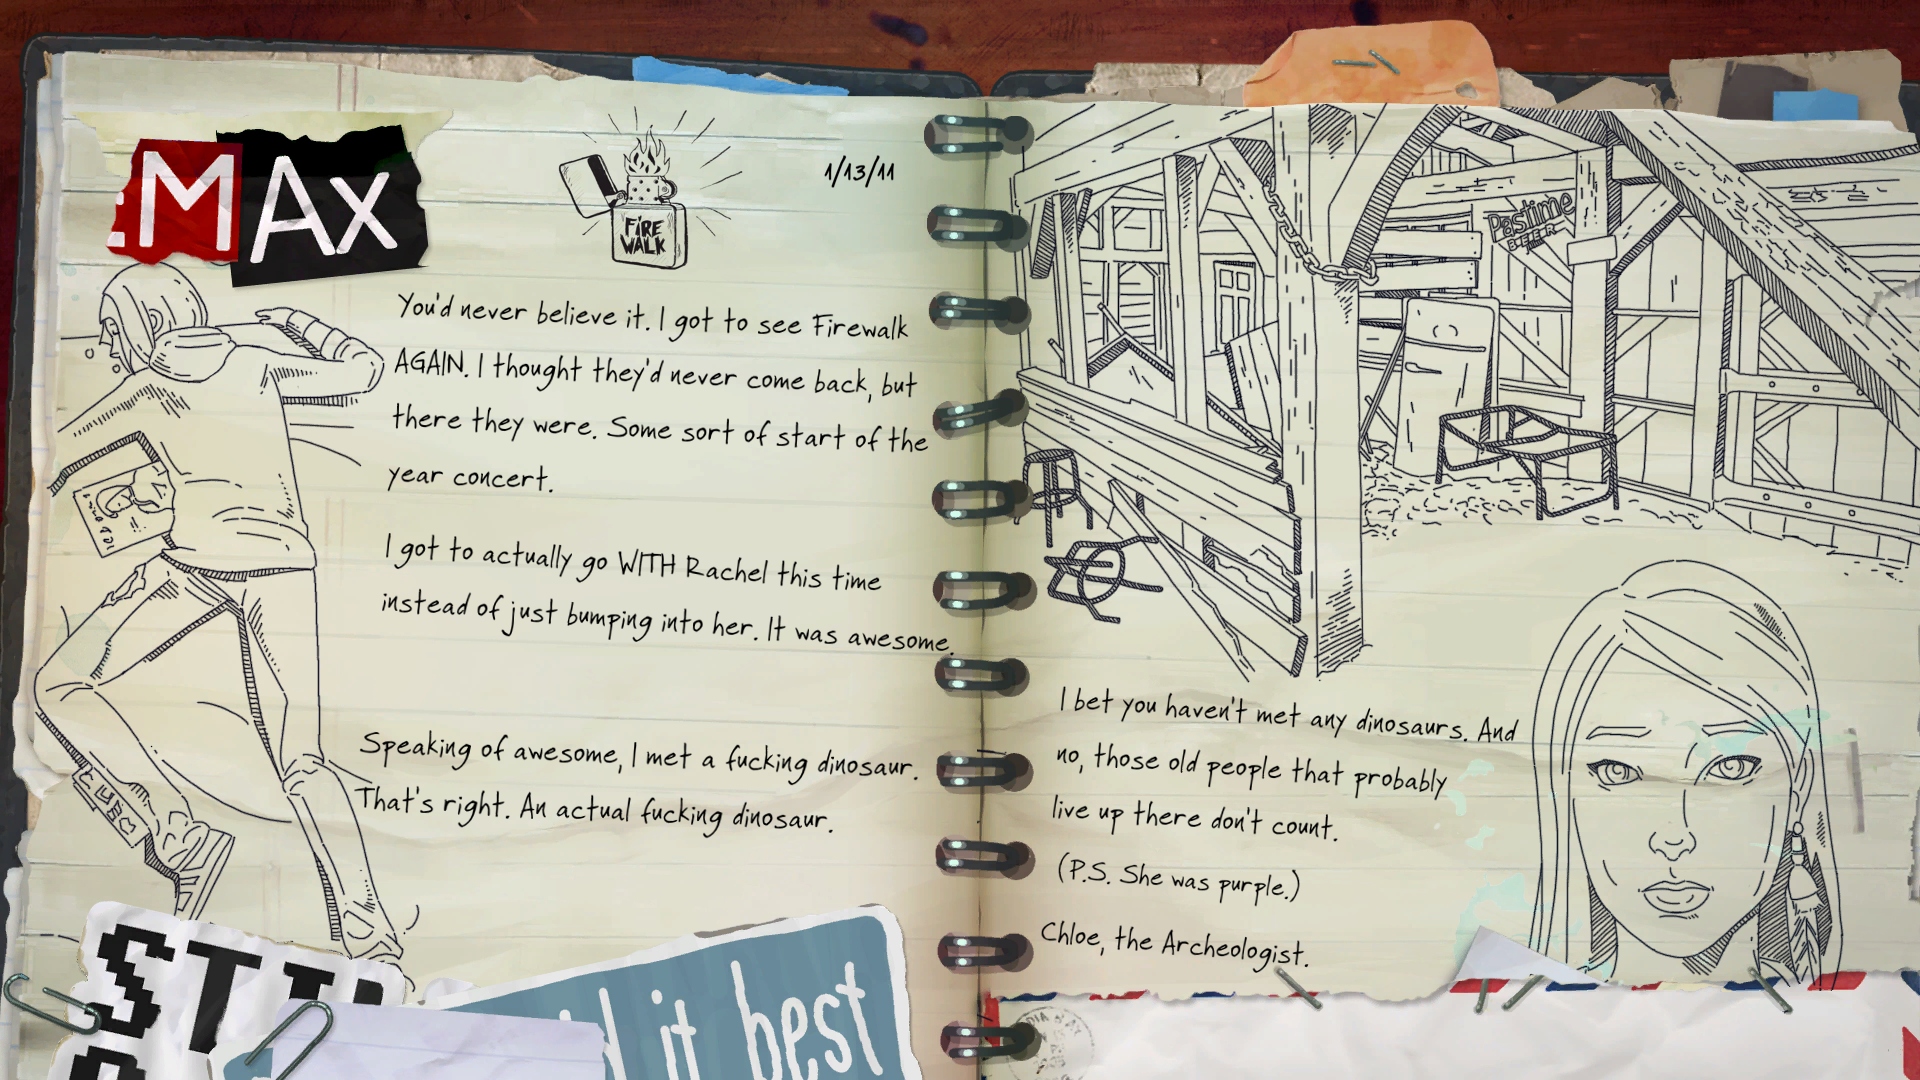 MAx
FiRE
WALK
1/13/11
You'd never believe it. I got to see Firewalk
AGAIN. I thought they'd never come back, but
there they were. Some sort of start of the
year concert.
I got to actually go WITH Rachel this time
instead of just bumping into her. It was awesome.
Speaking of awesome, I met a fucking dinosaur.
That's right. An actual fucking dinosaur.
it best
Pastime
BEER
I bet you haven't met any dinosaurs. And
no, those old people that probably
live up there don't count.
(P.S. She was purple.)
Chloe, the Archeologist.